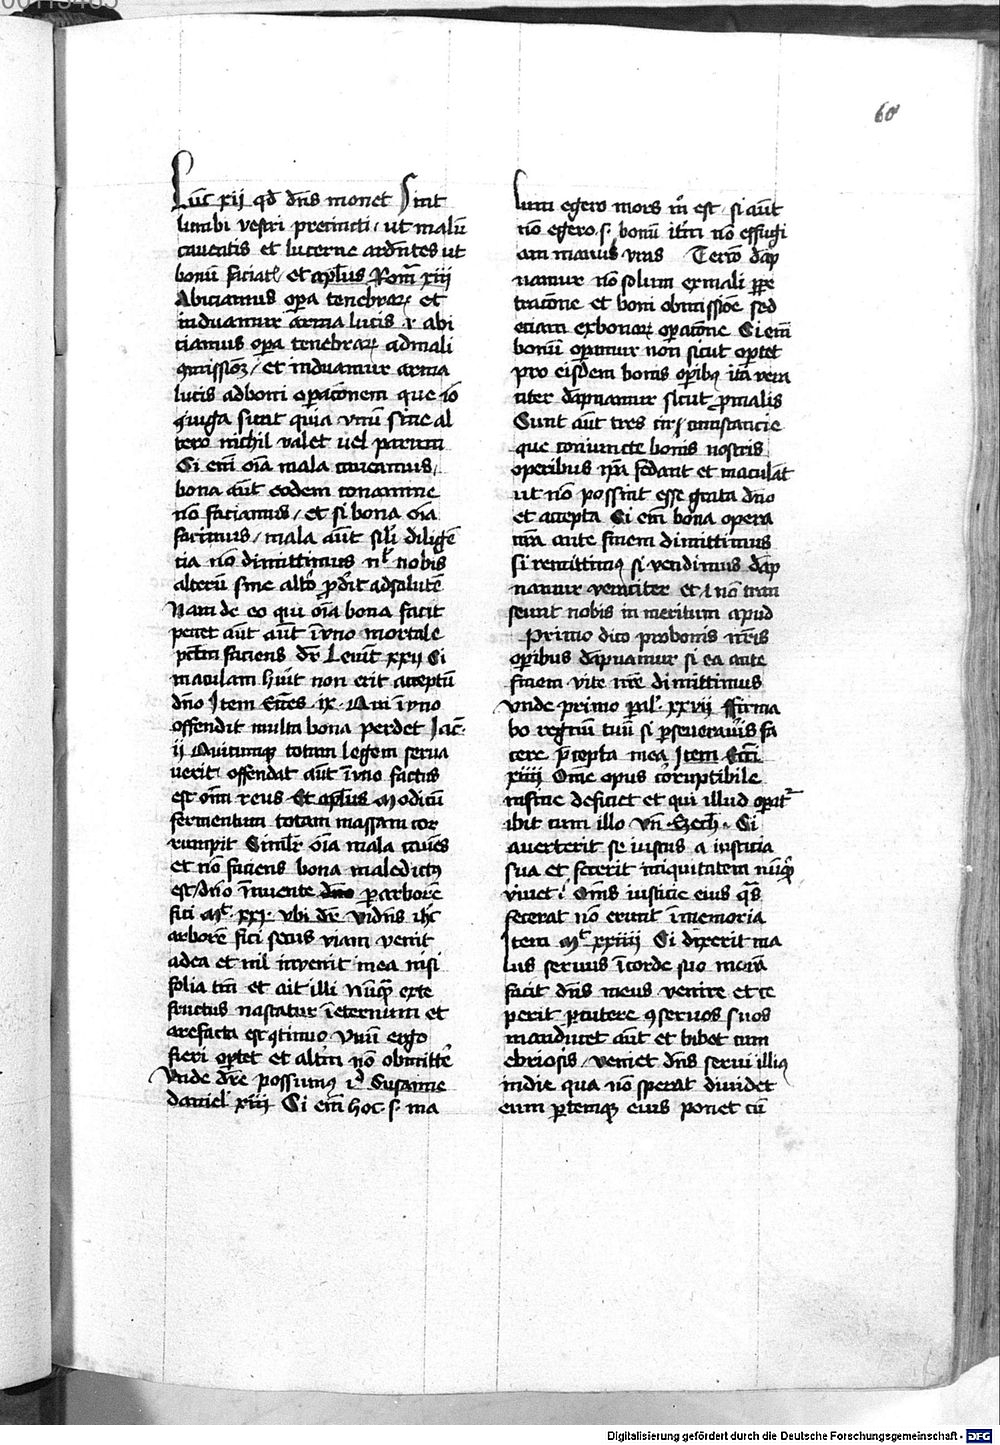 60
Luc̄ xij qd̄ dn̄s monet Sint
lumbi vestri precincti / ut malū
caueatis et lucerne ardn̄tes ut
bonū faciatꝭ / et apl̄us Rom̄ xiij
Abiciamus oꝑa tenebraꝝ et
induamur arma lucis .i. abi
ciamus oꝑa tenebraꝝ ad mali
ꝯmissioꝫ / et induamur arma
lucis ad boni oꝑac̄onem que iō
ꝯiuga sunt quia vnū sine al
tero nichil valet uel parum
Si em̄ oīa mala caueamus /
bona aūt eodem conamine
nō faciamus / et si bona oīa
facimus / mala aūt sil̄i diligē
tia nō dimittimus nl̄ nobis
alterū sine altō ꝓdēit ad salutē
Nam de eo qui oīa bona facit
peccet aūt aūt ī vno mortale
pctm̄ faciens dr̄ Leuit̄ xxij Si
maculam hūit non erit acceptū
dn̄o Item Eccēs ix. Qui ī vno
offendit multa bona perdet Iac̄.
ij Quicumqꝫ totam legem serua
uerit offendat aūt ī vno factus
est om̄i reus Et apl̄us Modicū
fermentum totam massam cor
rumpit Similr̄ oīa mala cauēs
et nō faciens bona maledictꝰ
est / dn̄o īnuente dn̄o ꝑ arborē
fici Mt̄. xxj. vbi dr̄ vidn̄s ihc̄
arborē fici secus viam venit
ad ea et nil inuenit in ea nisi
folia tm̄ et ait illi Nūq̄ꝫ ex te
fructus nascatur ī eternum et
arefacta est ꝯtinuo Vnū ergo
fieri oꝑtet et altm̄ nō obmittē
Vnde dr̄e possumꝰ id Susanne
Daniel̄ xiij Si em̄ hoc .s. ma
lum egero mors m̄ est / si aūt
nō egero .s. bonū itm̄ nō effugi
am manus vr̄as Tercō dāp
namur nō solum ex mali ꝑpe
tracōne et boni obmissiōe sed
etiam ex bonaꝝ oꝑacōne Si em̄
bonū oꝑamur non sicut oꝑtet
pro eisdem bonis oꝑibꝫ ita vera
citer dāpnamur sicut ꝓ malis
Sunt aūt tres circumstancie
que coniuncte bonis nostris
operibus ip̄a fedant et maculāt
ut nō possint esse grata dn̄o
et accepta Si em̄ bona opera
nr̄a ante finem dimittimus
si remittimꝰ si vendimus dāp
namur veraciter et nō tran
seunt nobis in meritum apud
Primo dico pro bonis nr̄is
oꝑibus dāpnamur si ea ante
finem vite nr̄e dimittimus
Vnde primo ꝑal̄. xxvij ffirma
bo regnū tuū si ꝑseuerauīs fa
cere p̄cepta mea Item Ecc̄i
xiiij Om̄e opus corruptibile
in fine deficiet et qui illud oꝑatᷣ
ibit cum illo Vn̄ Ezech̄. Si
auerterit se iustus a iusticia
sua et fecerit iniquitatem nūq̄ꝫ
viuet Om̄s iusticie eius qᷤs
fecerat nō erunt ī memoria
Item Mt̄ xxiiij Si dixerit ma
lus seruus ī corde suo morā
facit dn̄s meus venire et ce
perit ꝑcutere ꝯseruos suos
manducet aūt et bibet cum
ebriosis / veniet dn̄s serui illiꝰ
in die qua nō sperat diuidet
eum ꝑtemqꝫ eius ponet cū
Digitalisierung gefördert durch die Deutsche Forschungsgemeinschaft - DFG